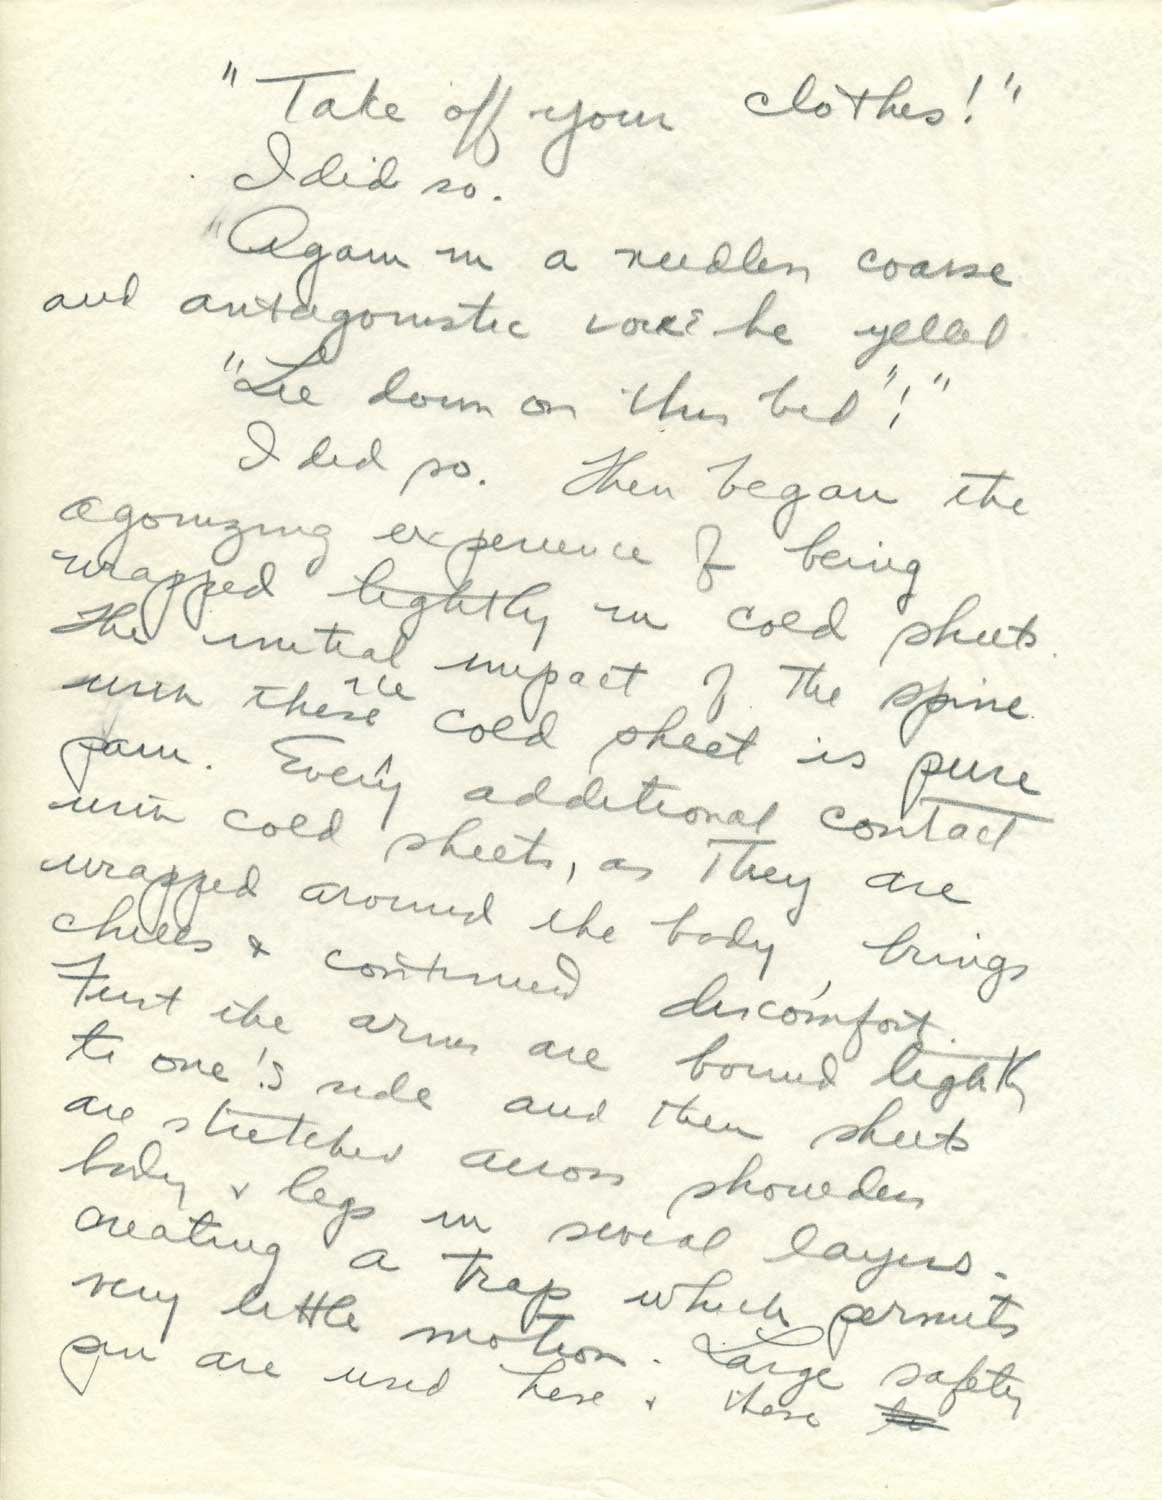 "Take off your clothes!"
I did so.
"Again in a needless coarse
and antagonistic voice he yelled
"Lie down on this bed"!"
I did so. Then began the
agonizing experience of being
wrapped tightly in cold sheets.
The initial impact of the spine
with these ice cold sheet is pure
pain. Every additional contact
with cold sheets, as they are
wrapped around the body brings
chills & continued discomfort.
First the arms are bound tightly
to one's side and then sheets
are stretched across shoulders
body & legs in several layers.
creating a trap which permits
very little motion. Large safety
pin are used here & there to